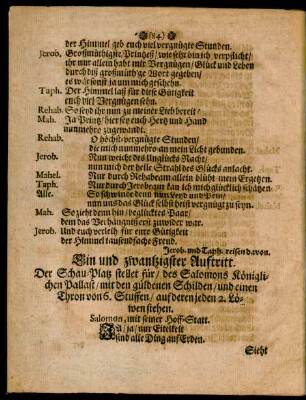 (84.)
der Himmel geb euch viel vergnügte Stunden.
Jerob. Großmüthigste/ Printzeß/ wie sehr bin ich verpflicht/
ihr nur allein habt mit Vergnügen/ Glück und Leben
durch diß großmüthige Wort gegeben/
es wär sonst ja um mich geschehn.
Taph. Der Himmel laß für diese Gütigkeit
euch viel Vergnügen sehn.
Rehab. So seyd ihr nun zu meiner Lieb bereit/
Mah. Ja Printz/ hier sey euch Hertz und Hand
nunmehro zugewandt.
Rehab. O höchst-vergnügte Stunden/
die mich nunmehro an mein Licht gebunden.
Jerob. Nun weicht des Unglücks Nacht/
nun mich der helle Strahl des Glücks anlacht.
Mahel. Nur durch Rehabeam allein blüht mein Ergetzen.
Taph. Nur durch Jerobeam kan ich mich glücklich schätzen.
Alle. So schwinde denn nun Leyd und Pein/
nun uns das Glück selbst heist vergnügt zu seyn.
Mah. So zieht denn hin/ beglücktes Paar/
dem das Verhängnis sonst zuwider war.
Jerob. Und euch verleih für eure Gütigkeit
der Himmel tausendfache Freud.
Jerob. und Taph. reisen davon.
Ein und zwantzigster Auftritt.
Der Schau-Platz stellet für/ des Salomons Königli-
chen Pallast/ mit den güldenen Schilden/ und einen
Thron von 6. Stuffen/ auf deren jeden 2. Lö-
wen stehen.
Salomon, mit seiner Hoff-Statt.
JA/ ja/ nur Eitelkeit
sind alle Ding auf Erden.
Sieht